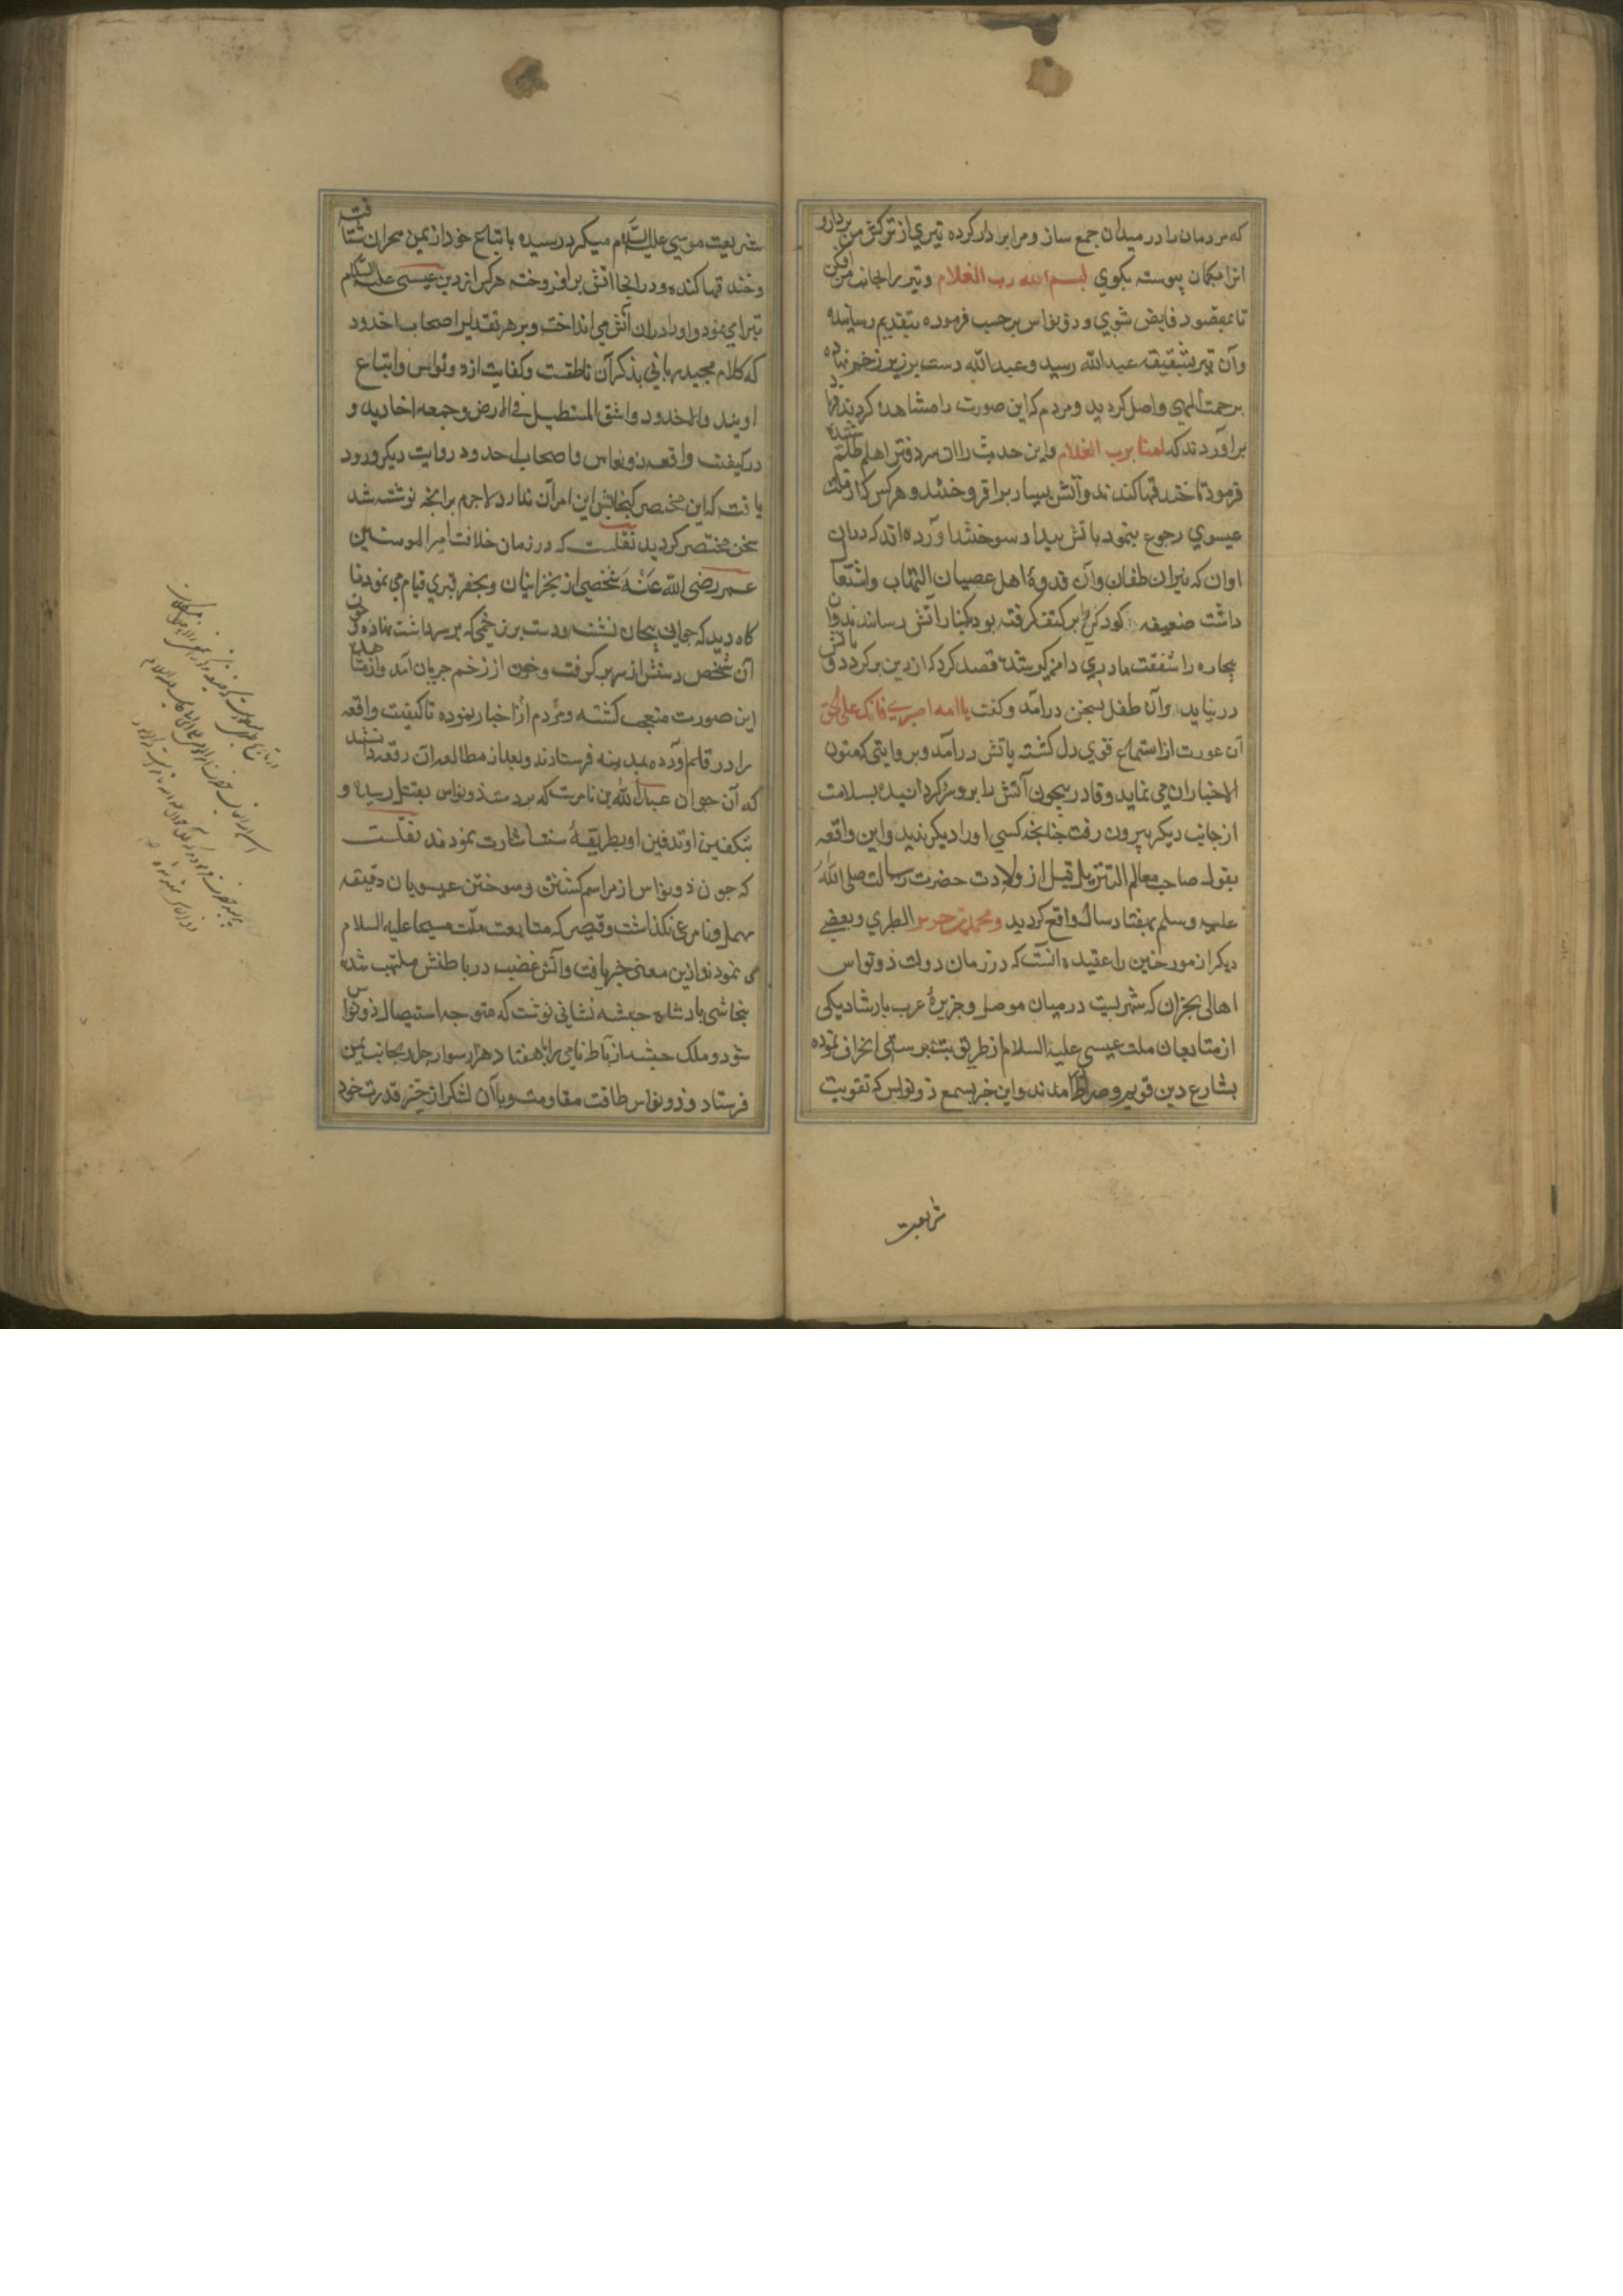 که مردمان را در میدان جمع ساز و مرا بر دار کرده تیری از ترکش من بردار و
انرا بکمان پیوسته بکوی بسم الله رب الغلام و تیر را بجانب من افکن
تا بمقصود فایض شوی و ذونواس برحسب فرموده بتقدیم رسانیده
وآن تیر بشقیقه عبدالله رسید و عبدالله دست بر زبر زخم نهاده
برحمت الهی واصل کردید و مردم که این صورت را مشاهده کردند فریاد
برآوردند که امنا برب الغلام واین حدیث را ان سردفتر اهل ظلم شنیده
فرمود تا خندقها کندند وآتش بسیار برافروختند و هرکس که از ملت
عیسوی رجوع ننمود باتش بیداد سوختند آورده اند که دران
اوان که نیران طغیان وآن قدوهٔ اهل عصیان التهاب واشتعال
داشت ضعیفه کودکی بر کتف گرفته بود بکنار آتش رسانیدند وان
بیچاره را شفقت مادری دامنگیر شده قصد کرد که از دین برکردد و باتش
در نیاید وآن طفل بسخن درآمد و کفت یا امه اصبری فانک علی الحق
آن عورت از استماع قوی دل کشته باتش درآمد و بروایتی که متون
الاخبار ان می نماید و قادر بیچون آتش را برو سرد کردانیده بسلامت
از جانب دیکر بیرون رفت چنانچه کسی او را دیکر ندید واین واقعه
بقول صاحب معالم التنزیل قبل از ولادت حضرت رسالت صلی الله
علیه وسلم بهفتاد سال واقع کردید ومحمد بن جریر الطبری وبعضی
دیکر از مورخین را عقیده انست که در زمان دولت ذونواس
اهالی نجران که شهریست در میان موصل و جزیرهٔ عرب بارشاد یکی
از متابعان ملت عیسی علیه السلام از طریق بت پرستی انحراف نموده
بشارع دین قویم و صراط آمدند واین خبر بسمع ذونواس که تقویت
شریعت
شریعت موسی علیه السلام میکرد رسیده باتباع خود از یمن بنجران شتافت
و خندقها کنده و در انجا اتش برافروخته هرکس از دین عیسی علیه السلام
تبرا نمی نمود او را دران آتش می انداخت و بر هر تقدیر اصحاب اخدود
که کلام مجید ربانی بذکر آن ناطقست و کفایت از ذونواس واتباع
اویند والاخدود واشق المستطیل فی الارض و جمعه اخادید و
در کیفیت واقعه ذونواس واصحاب اخدود روایت دیکر ورود
یافته که این مختصر کنجایش این امر آن ندارد لاجرم برانچه نوشته شد
سخن مختصر کردید نقلست که در زمان خلافت امیر المومنین
عمر رضی الله عنه شخصی از نجرانیان و بحفر قبری قیام می نمود نا
کاه دید که جوانی بیجان نشسته و دست بر زخمی که بر سر داشت نهاده چون
آن شخص دستش از سر بر گرفت و خون از زخم جریان آمد واز مشاهده
این صورت متعجب کشته و مردم را اخبار نموده تا کیفیت واقعه
را در قلم آورده بمدینه فرستادند و بعد از مطالعه آن رقعه دانستند
که آن جوان عبدالله بن ثامرست که بر دست ذونواس بقتل رسیده و
بتکفین او تدفین او بطریقهٔ سنت اشارت نمودند نقلست
که چون ذونواس از مراسم کشتن و سوختن عیسویان دقیقه
مهمل و نامرعی نکذاشت و قیصر که متابعت ملت مسیحا علیه السلام
می نمود ازین معنی خبر یافت وآتش غضب در باطنش ملتهب شده
بنجاشی پادشاه حبشه نشانی نوشت که متوجه استیصال ذونواس
شود و ملک حبشه ارباط نامی را با هفتاد هزار سوار جلد بجانب یمن
فرستاد و ذونواس طاقت مقاومت با آن لشکر از حیز قدرت خود